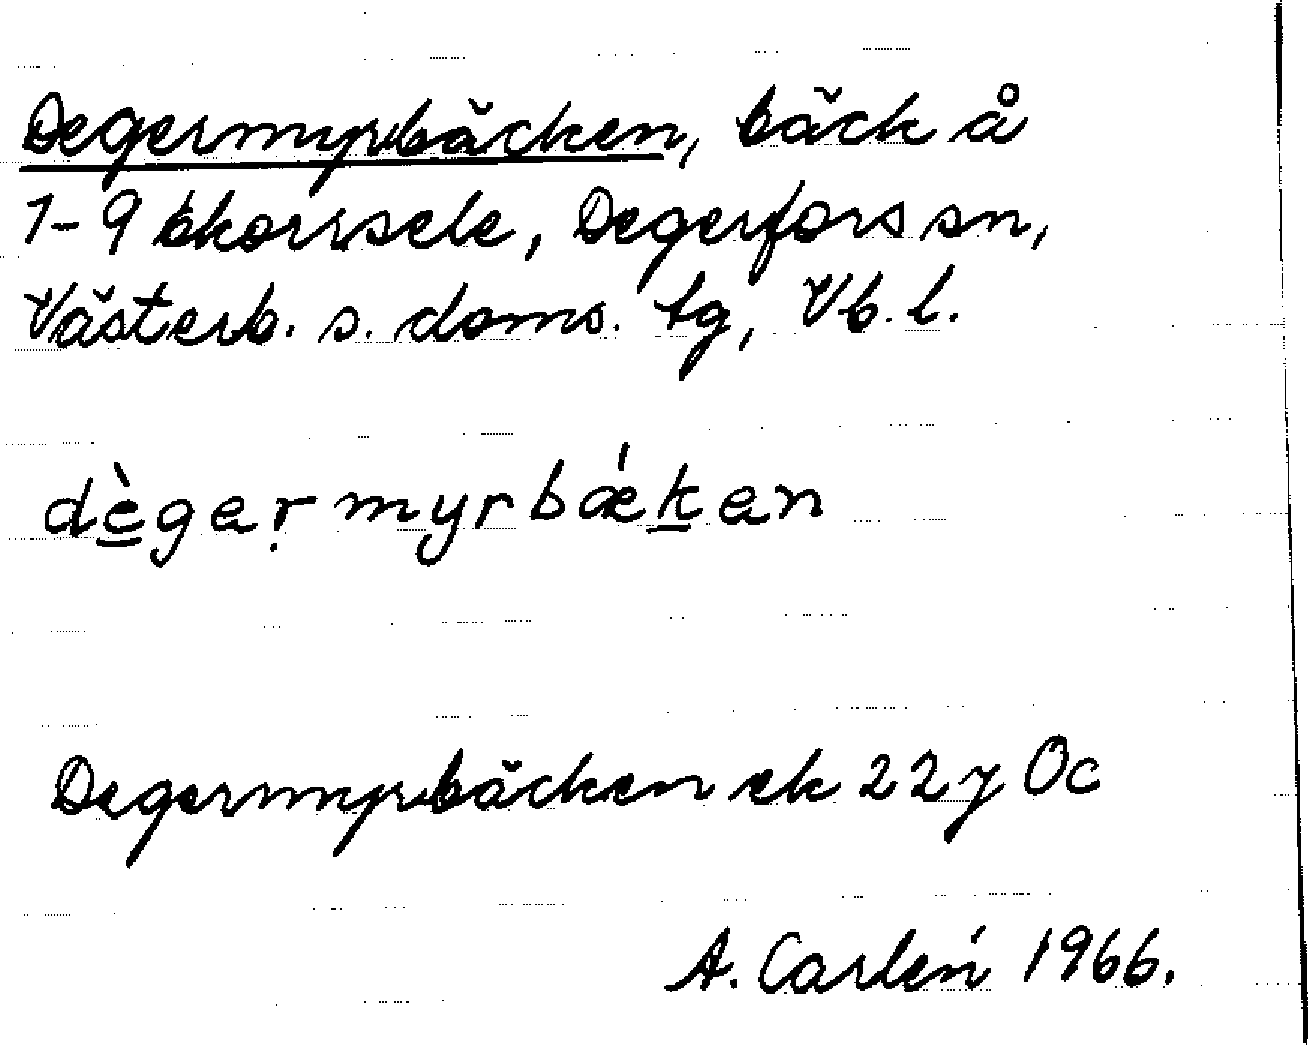 Degermyrbäcken, bäck å
1-9 Ekorrsele, Degerfors sn,
Västerb. s. doms. tg, Vb. l.
dègeṛmyrbǽken
Degermyrbäcken ek 22 y Oc
A. Carlén 1966.